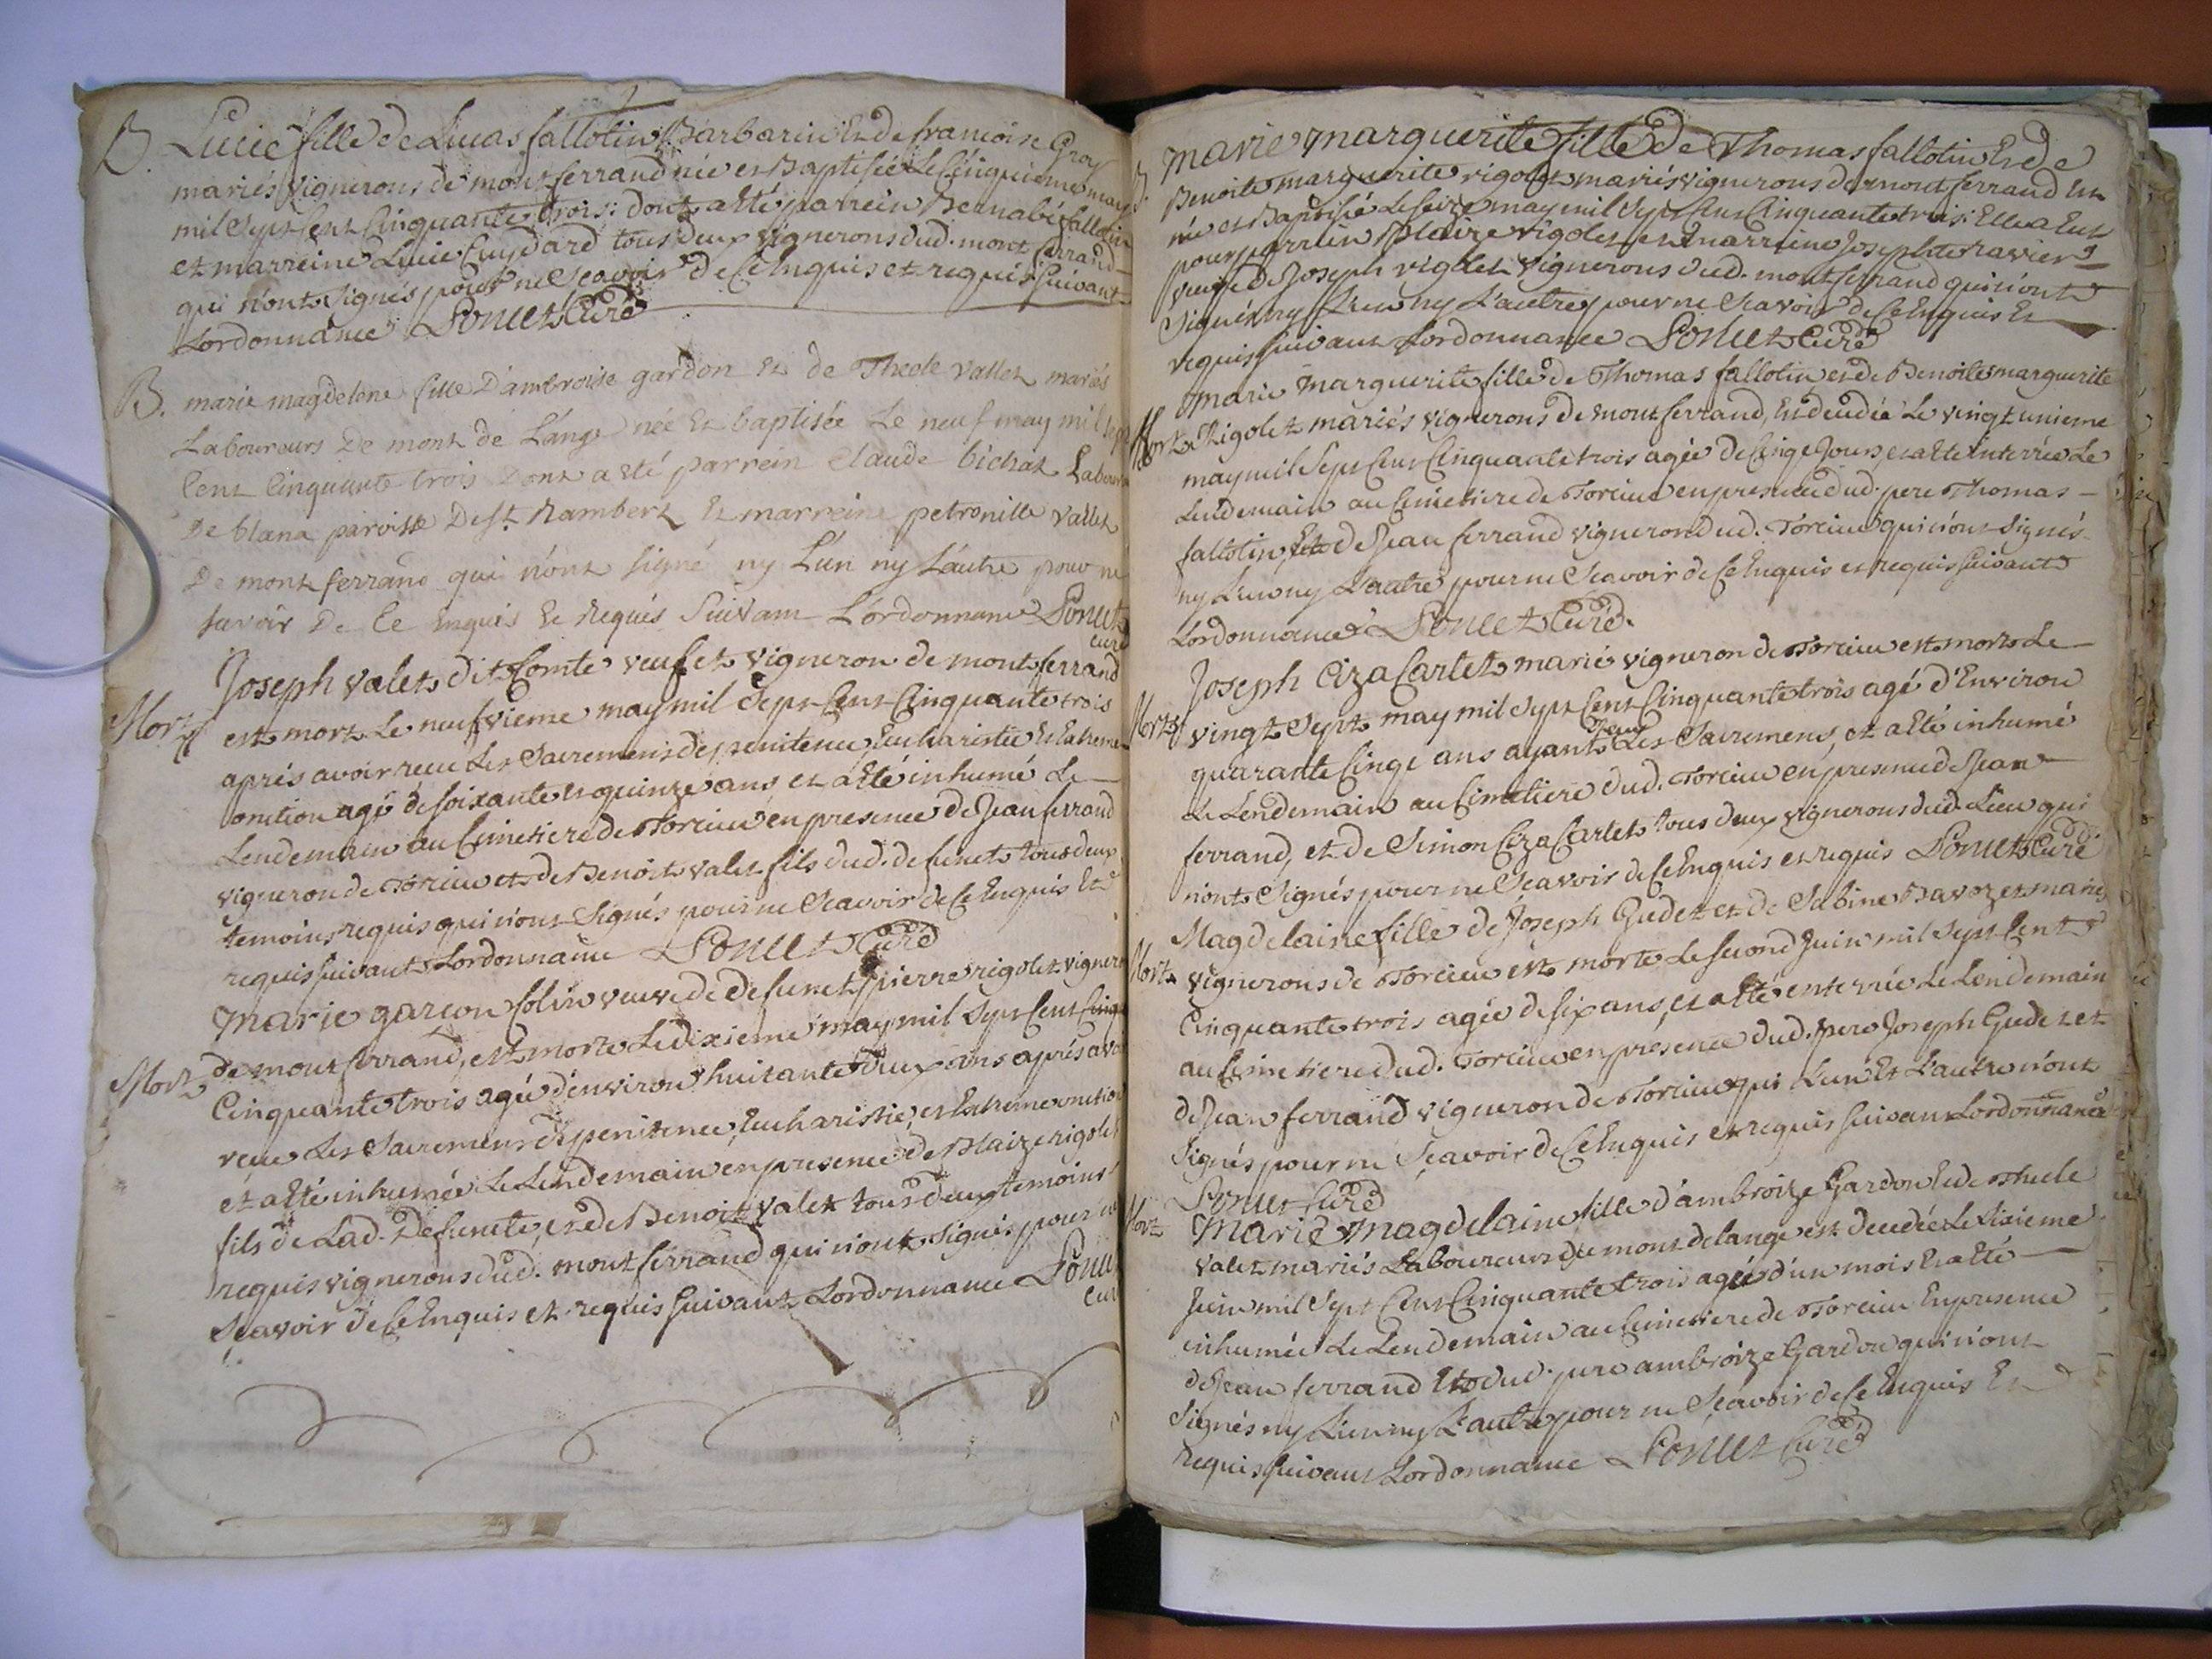 B. Lucie fille de Lucas fallotin Barbarin Et de francoise Gros
mariés vignerons de montferrand née et Baptisée Le Cinquieme may
mil Sept Cent Cinquante trois: dont a Eté parrein Bernabé fallotin
et marreine Lucie Cuydard tous deux vignerons dud. mont ferrand
qui n'ont Signés pour ne Scavoir de Ce Enquis et requis Suivant
Lordonnance Poncet Curé
B. marie magdelene fille D'ambroise gardon Et de Thecle vallet mariés
Laboureurs De mont de Lange née Et baptisée Le neuf may mil sept
Cent Cinquante trois Dont a Eté parrein Claude bichat Laboureur
De blana paroisse De St. Rambert Et marreine petronille vallet
De mont ferrand qui n'ont signé ny L'un ny L'autre pour ne
savoir De Ce Enquis Et Requis Suivant L'ordonnance Poncet
curé
Joseph valet dit Comte veuf et vigneron de mont ferrand
Mort est mort Le neufvieme may mil Sept Cent Cinquante trois
aprés avoir receu Les Sacremens de penitence Eucharistie Et Extreme
onction agé de soixante et quinze ans et a Eté inhumé Le
Lendemain au Cimetiere de Torcieu en presence de Jean ferrand
vigneron de Torcieu et de Benoit valet fils dud. defunct tous deux
temoins requis qui n'ont Signés pour ne Scavoir de Ce Enquis Et
requis suivant Lordonnance Poncet Curé
Marie garçon Colin veuve de defunct pierre rigolet vigneron
Mort de mont ferrand, est morte Le dixieme may mil Sept Cent Cinq
Cinquante trois agée d'environ huitante deux ans aprés avoir
receu Les Sacremens de penitence, Eucharistie, et Extreme onction
et a Eté inhumée Le Lendemain en presence de Blaize rigolet
fils de Lad. Defuncte, et de Benoit valet tous deux temoins
requis vignerons dud. mont ferrand qui n'ont Signés pour ne
Sçavoir de Ce Enquis et requis Suivant Lordonnance Poncet
curé
B. Marie Marguerite fille De Thomas fallotin Et de
Benoite marguerite rigolet mariés vignerons de montferrand Est
née et Baptisée Le seize may mil Sept Cent Cinquante trois: Elle a Eut
pour parrein Blaize rigolet et marreine Josephte ravier
veuve de Joseph rigolet vignerons dud. mont ferrand qui n'ont
Signés ny L'un ny L'autre pour ne Scavoir de Ce Enquis Et
requis suivant Lordonnance Poncet Curé
Marie Marguerite fille de Thomas fallotin et de Benoite marguerite
Mort Rigolet mariés vignerons de mont ferrand, Est decedée Le vingt unieme
may mil Sept Cent Cinquante trois agée de Cinq Jours, et a Eté Enterrée Le
Lendemain au Cimetiere de Torcieu en presence dud. pere Thomas
fallotin, Et de Jean ferrand vigneron dud. Torcieu qui n'ont Signés
ny L'un ny L'autre pour ne Scavoir de Ce Enquis et requis suivant
Lordonnance Poncet Curé.
Joseph Ciza Cartet marié vigneron de Torcieu est mort Le
Mort vingt Sept may mil Sept Cent Cinquante trois agé d'Environ
quarante Cinq ans ayant receu Les Sacremens, et a Eté inhumé
Le Lendemain au Cimetiere dud. Torcieu en presence de Jean
ferrand, et de Simon Ciza Cartet tous deux vignerons dud. Lieu qui
n'ont Signés pour ne Scavoir de Ce Enquis et requis Poncet Curé
Magdelaine fille de Joseph Gudet et de Sabine Bavozet mariés
Mort vignerons de Torcieu est morte Le second Juin mil Sept Cent
Cinquante trois agée de six ans, et a Eté enterrée Le Lendemain
au Cimetiere dud. Torcieu en presence dud. pere Joseph Gudet et
de Jean ferrand vigneron de Torcieu qui L'un Et L'autre n'ont
Signés pour ne Sçavoir de Ce Enquis et requis suivant Lordonnance
Poncet Curé
Mort Marie Magdelaine fille d'ambroize Gardon Et de Thecle
Valet mariés Laboureurs de mont delange est decedée Le Sixieme
Juin mil Sept Cent Cinquante trois agée d'un mois Et a Eté
inhumée Le Lendemain au Cimetiere de Torcieu En presence
de Jean ferrand Et dud. pere ambroize Gardon qui n'ont
Signés ny L'un ny L'autre pour ne Sçavoir de Ce Enquis Et
requis suivant Lordonnance Poncet Curé